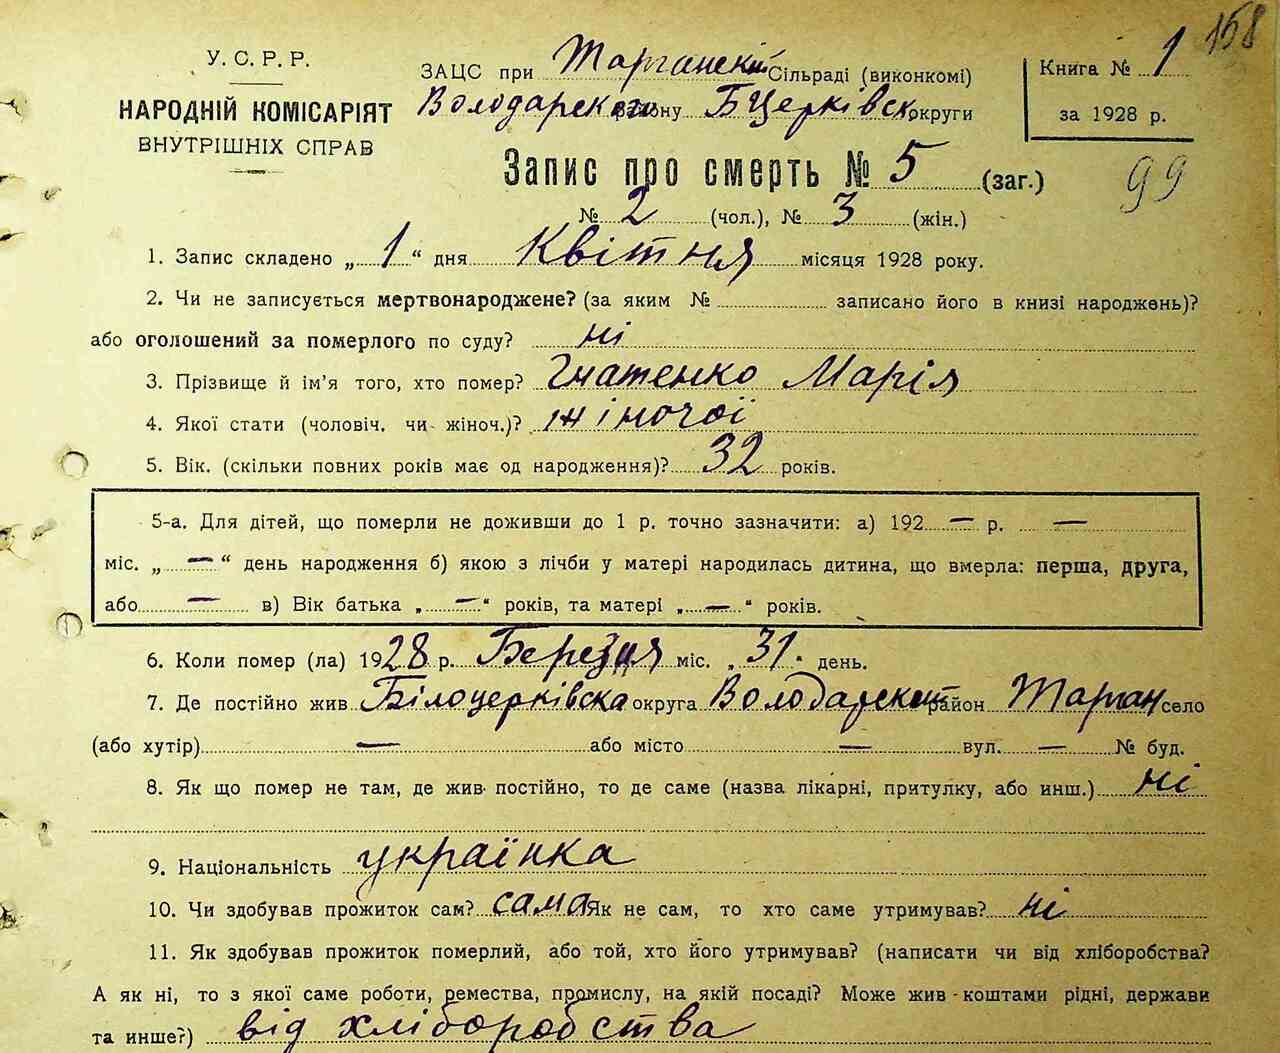 158
У. С. Р. Р.
НАРОДНІЙ КОМІСАРІЯТ
ВНУТРІШНІХ СПРАВ
ЗАЦС при Тарганскій Сільраді (виконкомі)
Володарского району БЦерківск. округи
Книга № 1
за 1928 р.
99
Запис про смерть № 5 (заг.)
№ 2 (чол.), № 3 (жін.)
1. Запис складено „ 1 “ дня Квітня місяця 1928 року.
2. Чи не записується мертвонароджене? (за яким № записано його в книзі народжень)?
або оголошений за померлого по суду? ні
3. Прізвище й ім'я того, хто помер? Гнатенко Марія
4. Якої стати (чоловіч. чи жіноч.)? жіночої
5. Вік. (скільки повних років має од народження)? 32 років.
5-а. Для дітей, що померли не доживши до 1 р. точно зазначити: а) 192 — р. —
міс. „ — “ день народження б) якою з лічби у матері народилась дитина, що вмерла: перша, друга,
або — в) Вік батька „ — “ років, та матері „ — “ років.
6. Коли помер (ла) 1928 р. Березня міс. „ 31 “ день.
7. Де постійно жив Білоцерківска округа Володарский район Тарган село
(або хутір) — або місто — вул. — № буд.
8. Як що помер не там, де жив постійно, то де саме (назва лікарні, притулку, або инш.) ні
9. Національність українка
10. Чи здобував прожиток сам? сама Як не сам, то хто саме утримував? ні
11. Як здобував прожиток померлий, або той, хто його утримував? (написати чи від хліборобства?
А як ні, то з якої саме роботи, ремества, промислу, на якій посаді? Може жив коштами рідні, держави
та инше?) від хліборобства